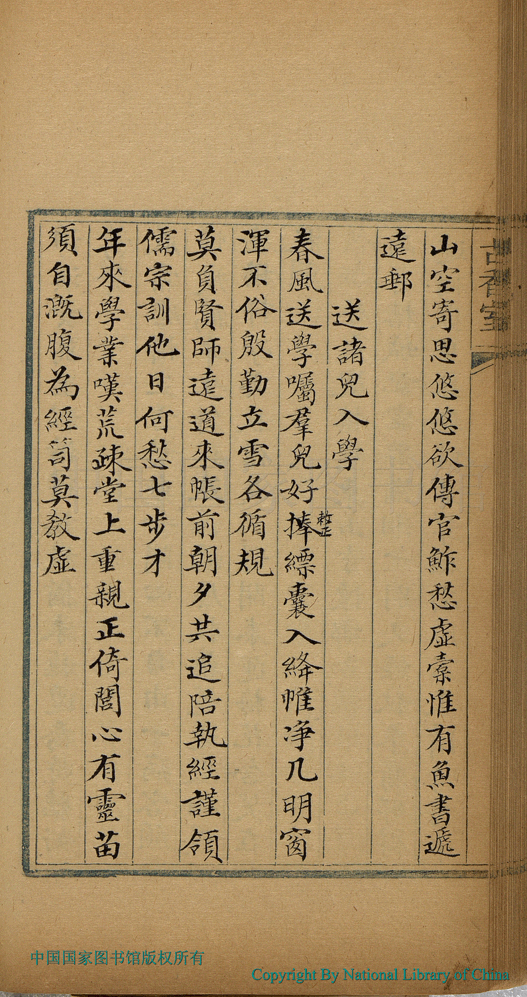 古香室
山空寄思悠悠欲傳官鮓愁虛橐惟有魚書遞
遠郵
送諸兒入學
春風送學囑羣兒好捧縹囊入絳帷净几明窗
整正
渾不俗殷勤立雪各循規
莫負賢師遠道來帳前朝夕共追陪執經謹領
儒宗訓他日何愁七步才
年來學業嘆荒疎堂上重親正倚閭心有靈苗
須自溉腹為經笥莫教虛
中国国家图书馆版权所有
Copyright By National Library of China